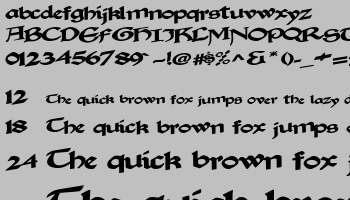 abcdefghijklmnopqrstuvwxyz
ABCDEFGHIJKLMNOPQRST
0123456789 ~!@#$%^&*()-_+=
12 The quick brown fox jumps over the lazy d
18 The quick brown fox jumps
24 The quick brown fox j
The quick brow